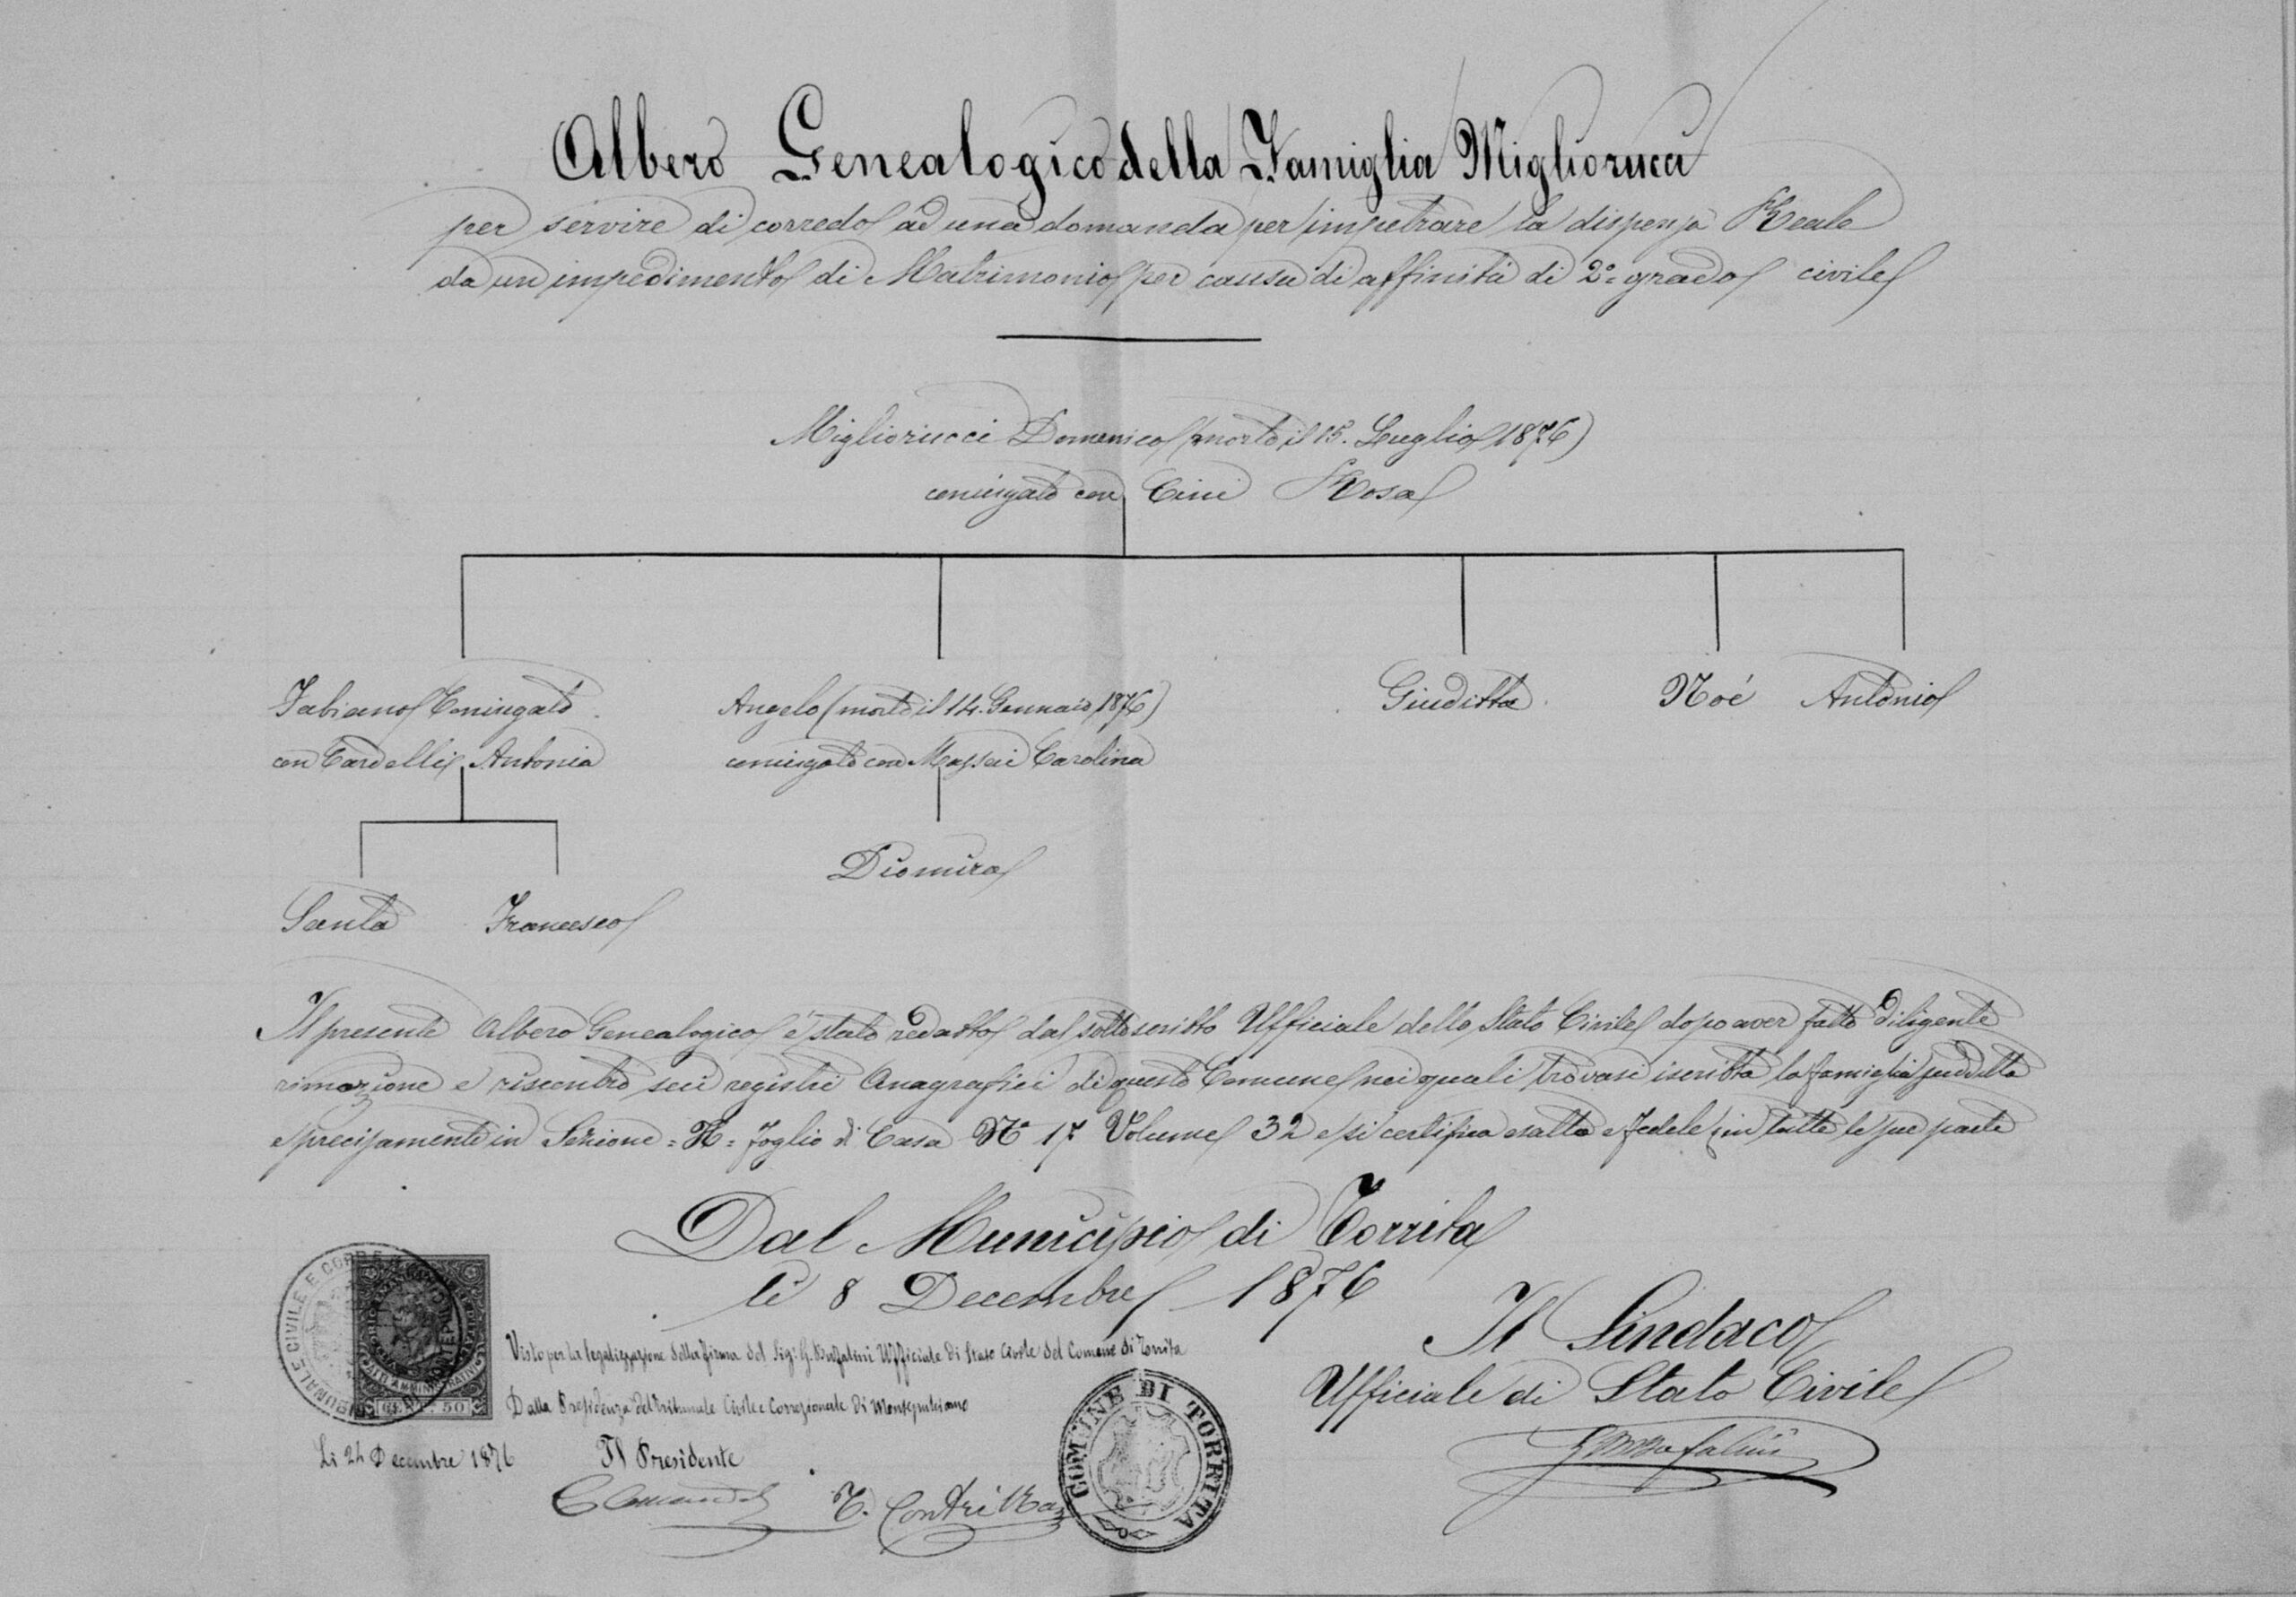 Albero Genealogico della Famiglia Migliorucci
per servire di corredo ad una domanda per impetrare la dispensa Reale
da un impedimento di Matrimonio per causa di affinità di 2º grado civile
Migliorucci Domenico (morto il 15. Luglio 1876)
coniugato con Cini Rosa
Fabiano Coniugato
con Cardelli Antonia
Angelo (morto il 14. Gennaio 1876)
coniugato con Massei Carolina
Giuditta
Noé
Antonio
Diomira
Santa
Francesco
Il presente Albero Genealogico é stato redatto dal sottoscritto Ufficiale dello Stato Civile dopo aver fatto diligente
e riscontro sui registri Anagrafici di questo Comune nei quali trovasi iscritta la famiglia suddetta
e precisamente in Sezione = H = foglio di Casa Nº 17 Volume 32 e si certifica esatto e fedele in tutte le sue parte
Dal Municipio di Torrita
li 8 Decembre 1876
Il Sindaco
Ufficiale di Stato Civile
Visto per la legalizzazione della firma del Sig: G. Buffalini Ufficiale di Stato Civile del Comune di Torrita
Dalla Presidenza del Tribunale Civile e Correzionale di Montepulciano
Li 24 Decembre 1876
Il Presidente
CENT. 50
COMUNE DI TORRITA